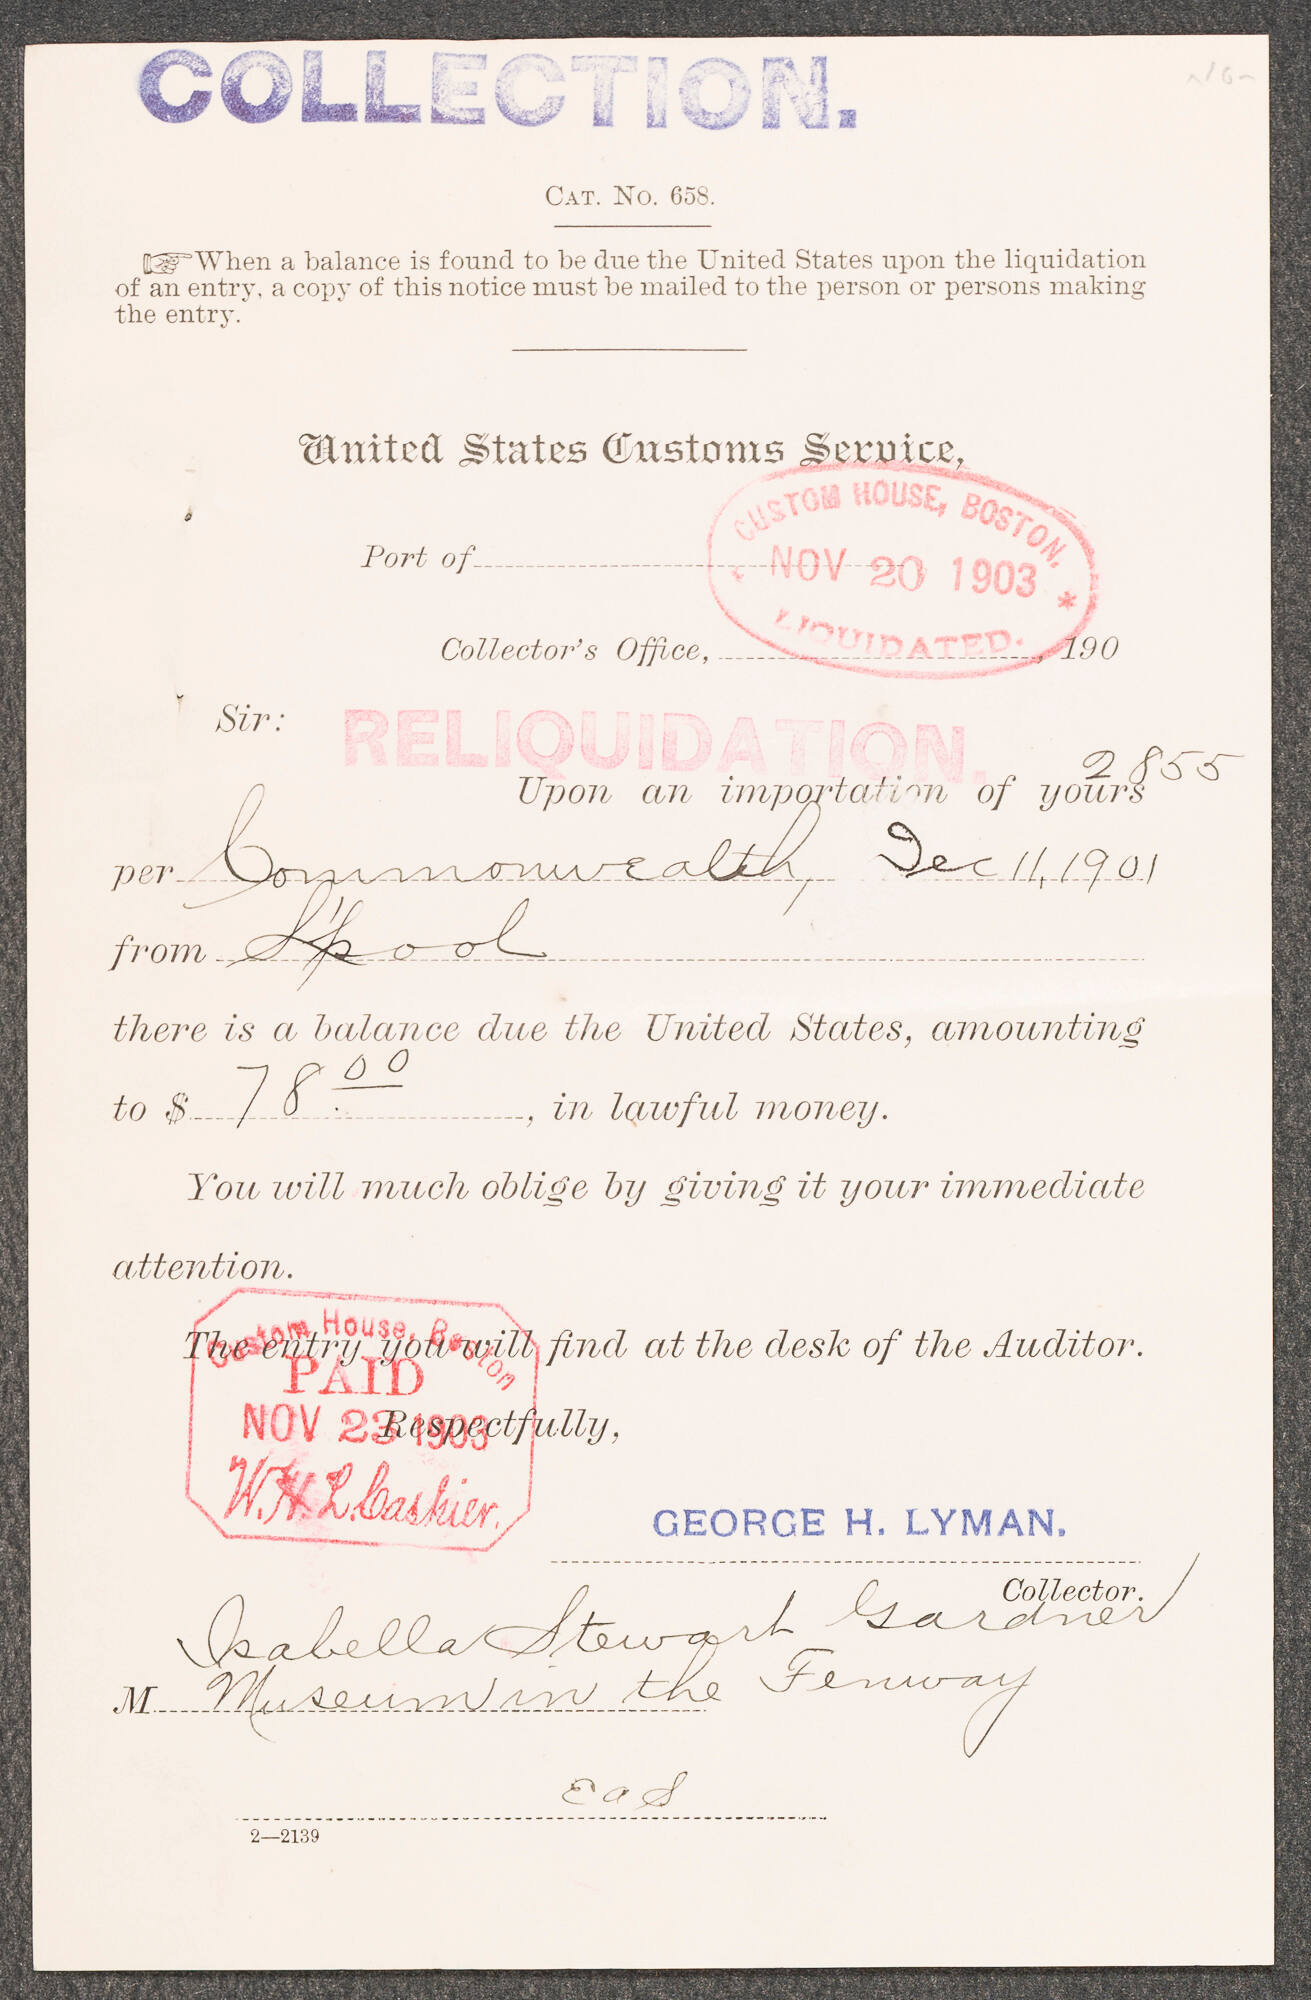 COLLECTION.
CAT. NO. 658.
When a balance is found to be due the United States upon the liquidation
of an entry, a copy of this notice must be mailed to the person or persons making
the entry.
United States Customs Service,
CUSTOM HOUSE, BOSTON.
Port of
NOV 20 1903
LIQUIDATED.
Collector's Office, , 190
Sir:
RELIQUIDATION.
2855
Upon an importation of yours
per Commonwealth, Dec 11, 1901
from L'pool
there is a balance due the United States, amounting
to $ 78.00, in lawful money.
You will much oblige by giving it your immediate
attention.
Custom House, Boston
The entry you will find at the desk of the Auditor.
PAID
NOV 23 1903
Respectfully,
W.H.L. Cashier.
GEORGE H. LYMAN.
Collector.
Isabella Stewart Gardner
M Museum in the Fenway
EAS
2—2139